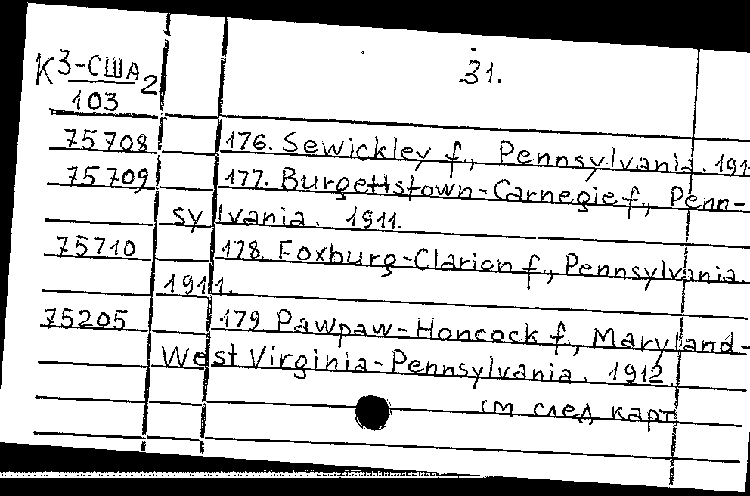 К3-США2 31.
103
75708 176. Sewickley f., Pennsylvania. 191
75709 177. Burgettstown-Carnegie f., Penn-
sylvania. 1911.
75710 178. Foxburg-Clarion f., Pennsylvania.
1911.
75205 179 Pawpaw-Honcock f., Maryland-
West Virginia-Pennsylvania. 1912.
см след карт